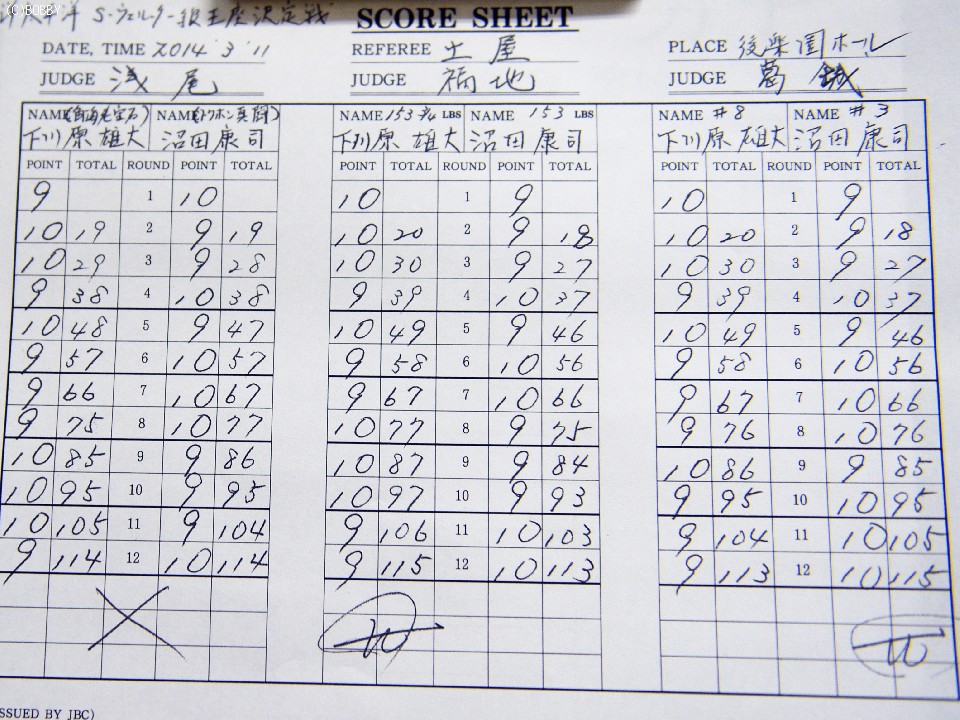 (C)BOBBY
S・ウェルター級王座決定戦 SCORE SHEET
DATE, TIME 2014 3 11 REFEREE 土屋 PLACE 後楽園ホール
JUDGE 浅尾 JUDGE 福地 JUDGE 葛城
NAME NAME NAME 153 3/4 LBS NAME 153 LBS NAME #8 NAME #3
下川原 雄大 沼田 康司 下川原 雄大 沼田 康司 下川原 雄大 沼田 康司
POINT TOTAL ROUND POINT TOTAL POINT TOTAL ROUND POINT TOTAL POINT TOTAL ROUND POINT TOTAL
9 1 10 10 1 9 10 1 9
10 19 2 9 19 10 20 2 9 18 10 20 2 9 18
10 29 3 9 28 10 30 3 9 27 10 30 3 9 27
9 38 4 10 38 9 39 4 10 37 9 39 4 10 37
10 48 5 9 47 10 49 5 9 46 10 49 5 9 46
9 57 6 10 57 9 58 6 10 56 9 58 6 10 56
9 66 7 10 67 9 67 7 10 66 9 67 7 10 66
9 75 8 10 77 10 77 8 9 75 9 76 8 10 76
10 85 9 9 86 10 87 9 9 84 10 86 9 9 85
10 95 10 9 95 10 97 10 9 93 9 95 10 10 95
10 105 11 9 104 9 106 11 10 103 9 104 11 10 105
9 114 12 10 114 9 115 12 10 113 9 113 12 10 115
W W
SSUED BY JBC)